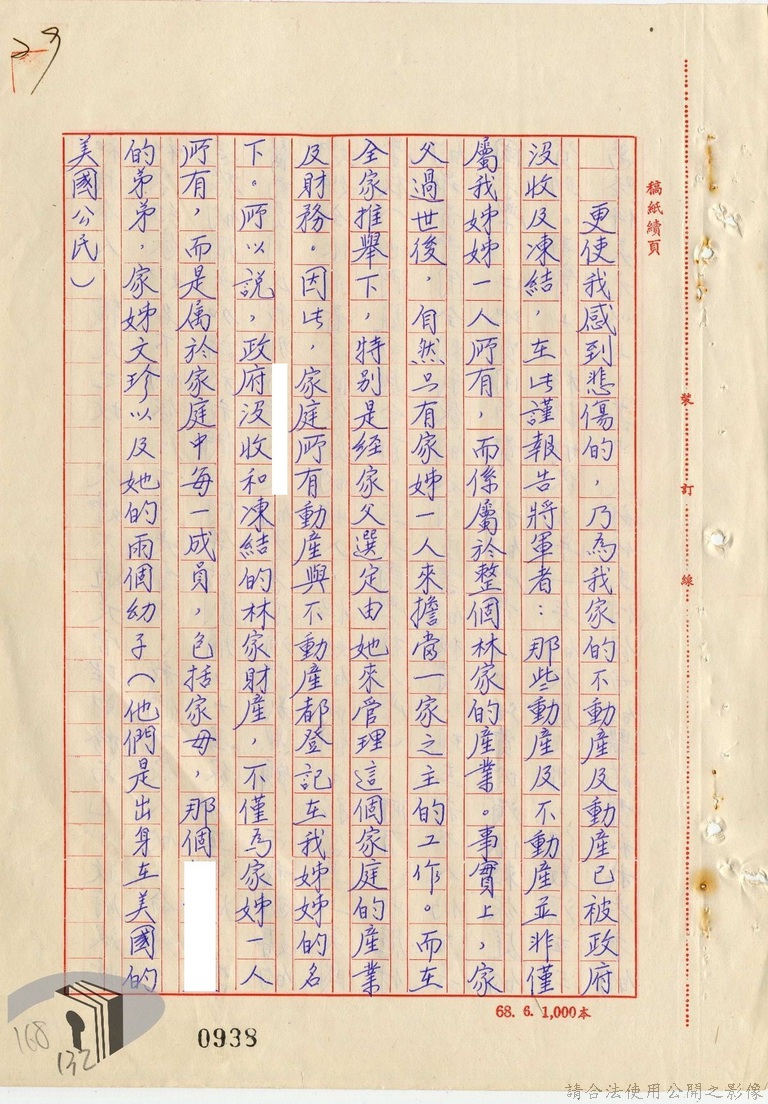 稿紙續頁
裝 訂 線
更使我感到悲傷的，乃為我家的不動產及動產已被政府
沒收及凍結，在此謹報告將軍者：那些動產及不動產並非僅
屬我姊姊一人所有，而係屬於整個林家的產業。事實上，家
父過世後，自然只有家姊一人來擔當一家之主的工作。而在
全家推舉下，特別是經家父選定由她來管理這個家庭的產業
及財務。因此，家庭所有動產與不動產都登記在我姊姊的名
下。所以說，政府沒收和凍結的林家財產，不僅為家姊一人
所有，而是属於家庭中每一成員，包括家母，那個
的弟弟，家姊文珍以及她的兩個幼子（他們是出身在美國的
美國公民）
68. 6. 1,000本
29
0938
168
132
請合法使用公開之影像